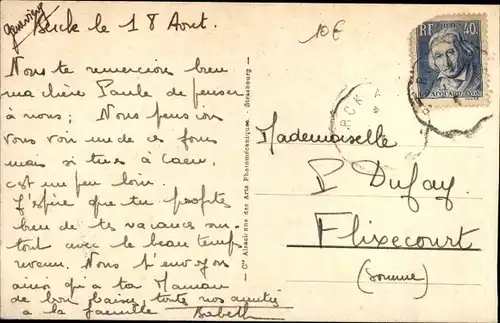 Geneviève
Berck le 18 Aout.
10€
Nous te remercions bien
ma chère Paule de penser
à nous ; Nous pensions
vous voir un de ces jours
mais si tu es à Caen,
c'est un peu loin.
J'espère que tu profites
bien de tes vacances sur-
tout avec le beau temps
revenu. Nous t'envoyons
ainsi qu'à ta Maman
de bon baisers, toute nos amitiés
a la famille Babeth
Cie Alsacienne des Arts Photomécaniques - Strasbourg
RF
40c
RCK
Mademoiselle
P Dufay
Flixecourt
(Somme)